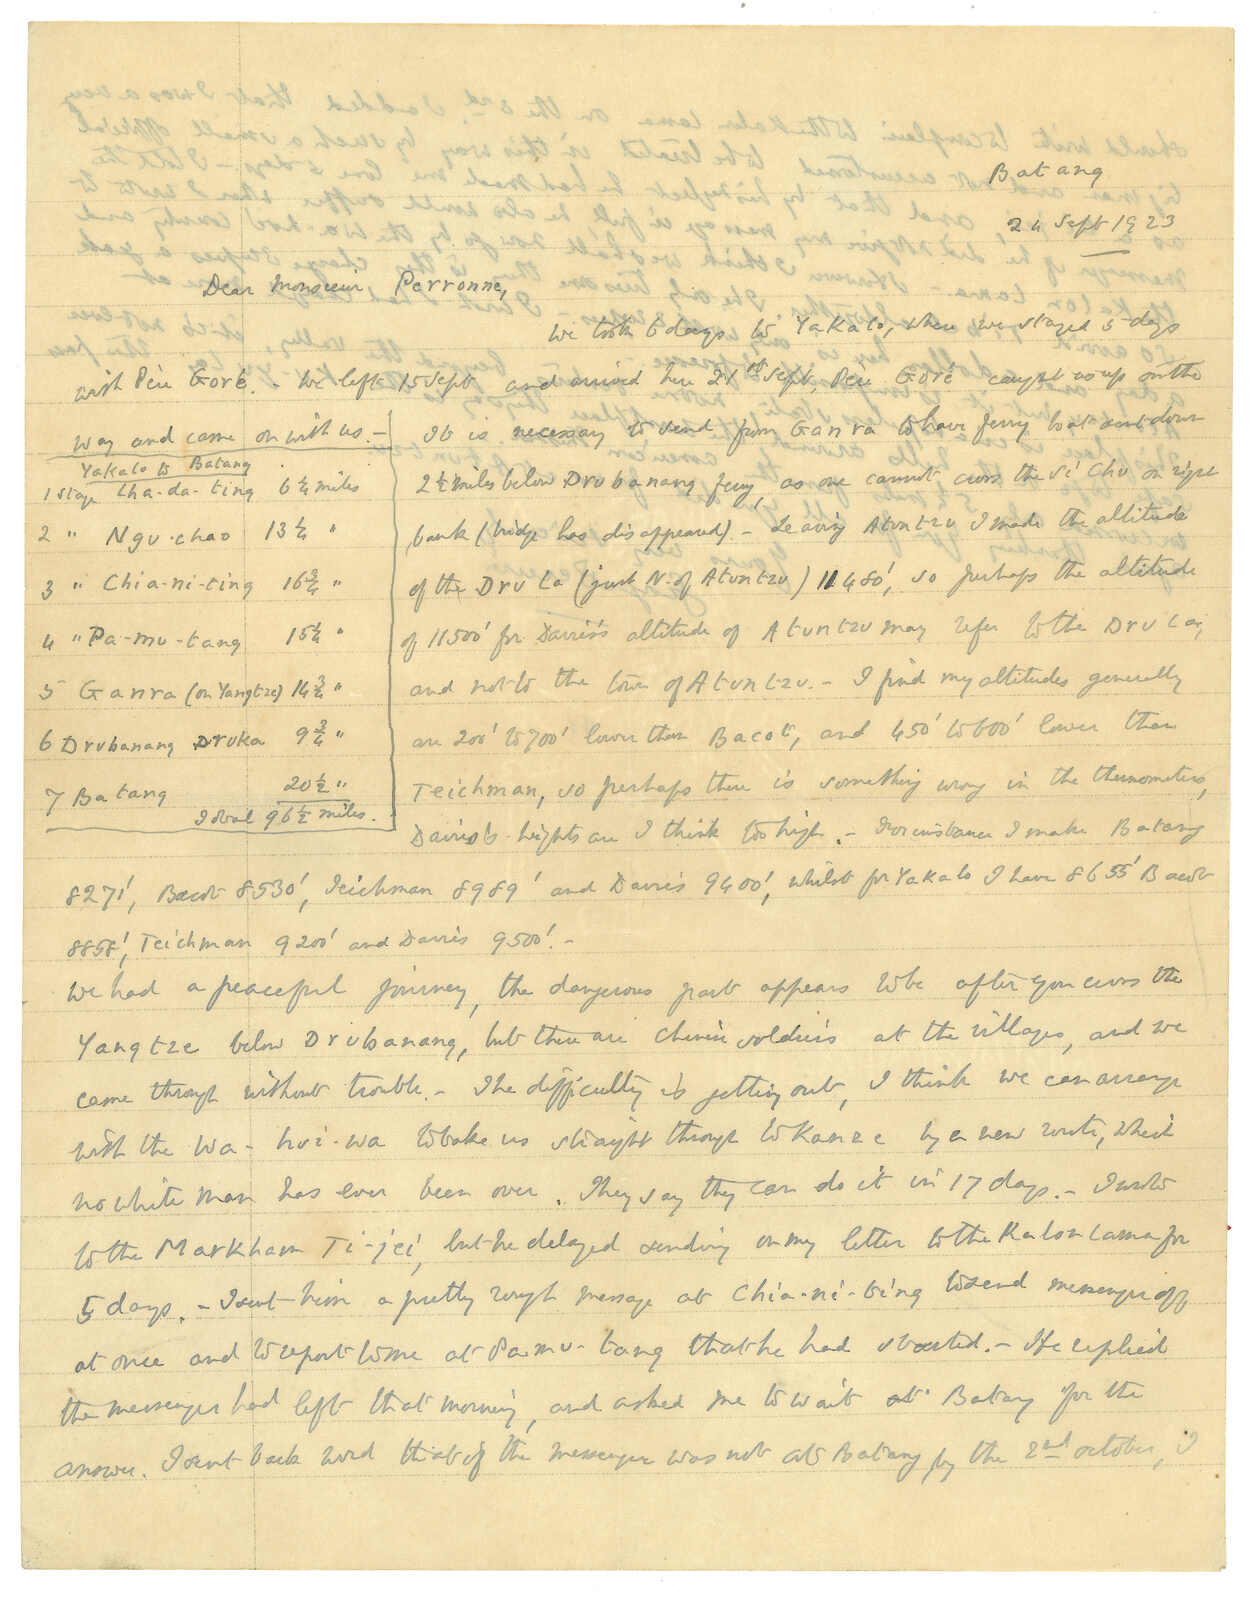 Batang
24 Sept 1923
Dear Monsieur Perronne,
We took 6 days to Yakalo, where we stayed 5 days
with Père Goré. - We left 15 Sept and arrived here 21st Sept, Père Goré caught us up on the
way and came on with us. -
Yakalo to Batang
1 stage Lha-da-ting 6 1/4 miles
2 " Ngu-chao 13 1/4 "
3 " Chia-ni-ting 16 3/4 "
4 " Pa-mu-tang 15 1/4 "
5 Ganra (on Yangtze) 14 3/4 "
6 Drubanang Druka 9 3/4 "
7 Batang 20 1/2 "
Total 96 1/2 miles.
It is necessary to send from Ganra to have ferry boat sent down
2 1/2 miles below Drubanang ferry, as one cannot cross the Si Chu on right
bank (bridge has disappeared). - Leaving Atuntzu I made the altitude
of the Dru La (just N. of Atuntzu) 11480', so perhaps the altitude
of 11500' for Davies's altitude of Atuntzu may refer to the Dru La,
and not to the town of Atuntzu. - I find my altitudes generally
are 200' to 700' lower than Bacot, and 450' to 600' lower than
Teichman, so perhaps there is something wrong in the thermometers,
Davies's heights are I think too high. - For instance I make Batang
8271', Bacot 8530', Teichman 8989' and Davies 9400', whilst for Yakalo I have 8655' Bacot
8858', Teichman 9200' and Davies 9500'. -
We had a peaceful journey, the dangerous part appears to be after you cross the
Yangtze below Drubanang, but there are Chinese soldiers at the villages, and we
came through without trouble. - The difficulty is getting out, I think we can arrange
with the Wa-hui-wa to take us straight through to Kanze by a new route, which
no white man has ever been over. They say they can do it in 17 days. - I wrote
to the Markham Ti-jei, but he delayed sending on my letter to the Kalon Lama for
5 days. - I sent him a pretty rough message at Chia-ni-ting to send messenger off
at once and to report to me at Pa-mu-tang that he had started. - He replied
the messenger had left that morning, and asked me to wait at Batang for the
answer. I sent back word that if the messenger was not at Batang by the 2nd October, I